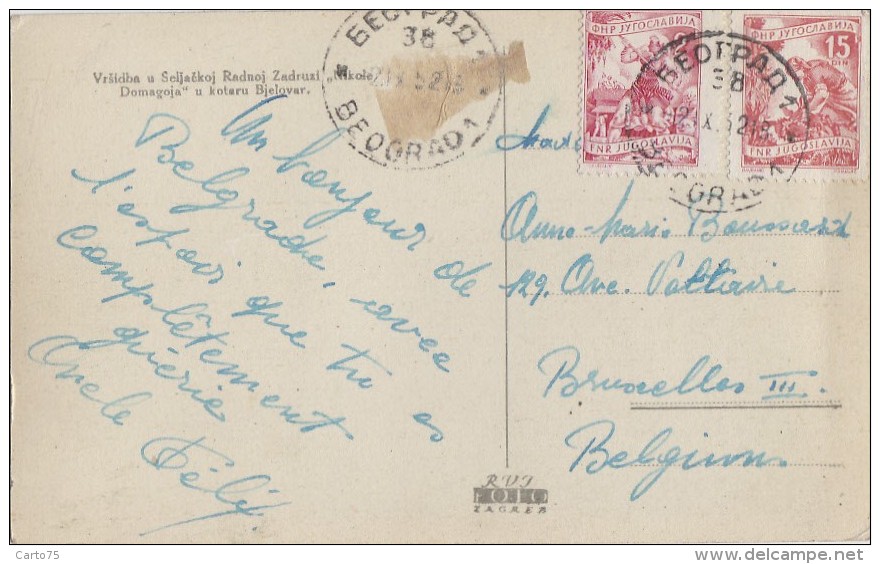 Vršidba u Seljačkoj Radnoj Zadruzi „Nikole
Domagoja" u kotaru Bjelovar.
БЕОГРАД 1
38
BEOGRAD 1
ФНР ЈУГОСЛАВИЈА
FNR JUGOSLAVIJA
ФНР ЈУГОСЛАВИЈА
15
DIN
FNR JUGOSLAVIJA
БЕОГРАД 1
38
Un bonjour de
Belgrade, avec
l'espoir que tu es
complètement
guérie
Oncle Félix
Anne-Marie Boussart
129, Ave. Voltaire
Bruxelles III.
Belgium
RVI
FOTO
ZAGREB
Carto75
www.delcampe.net